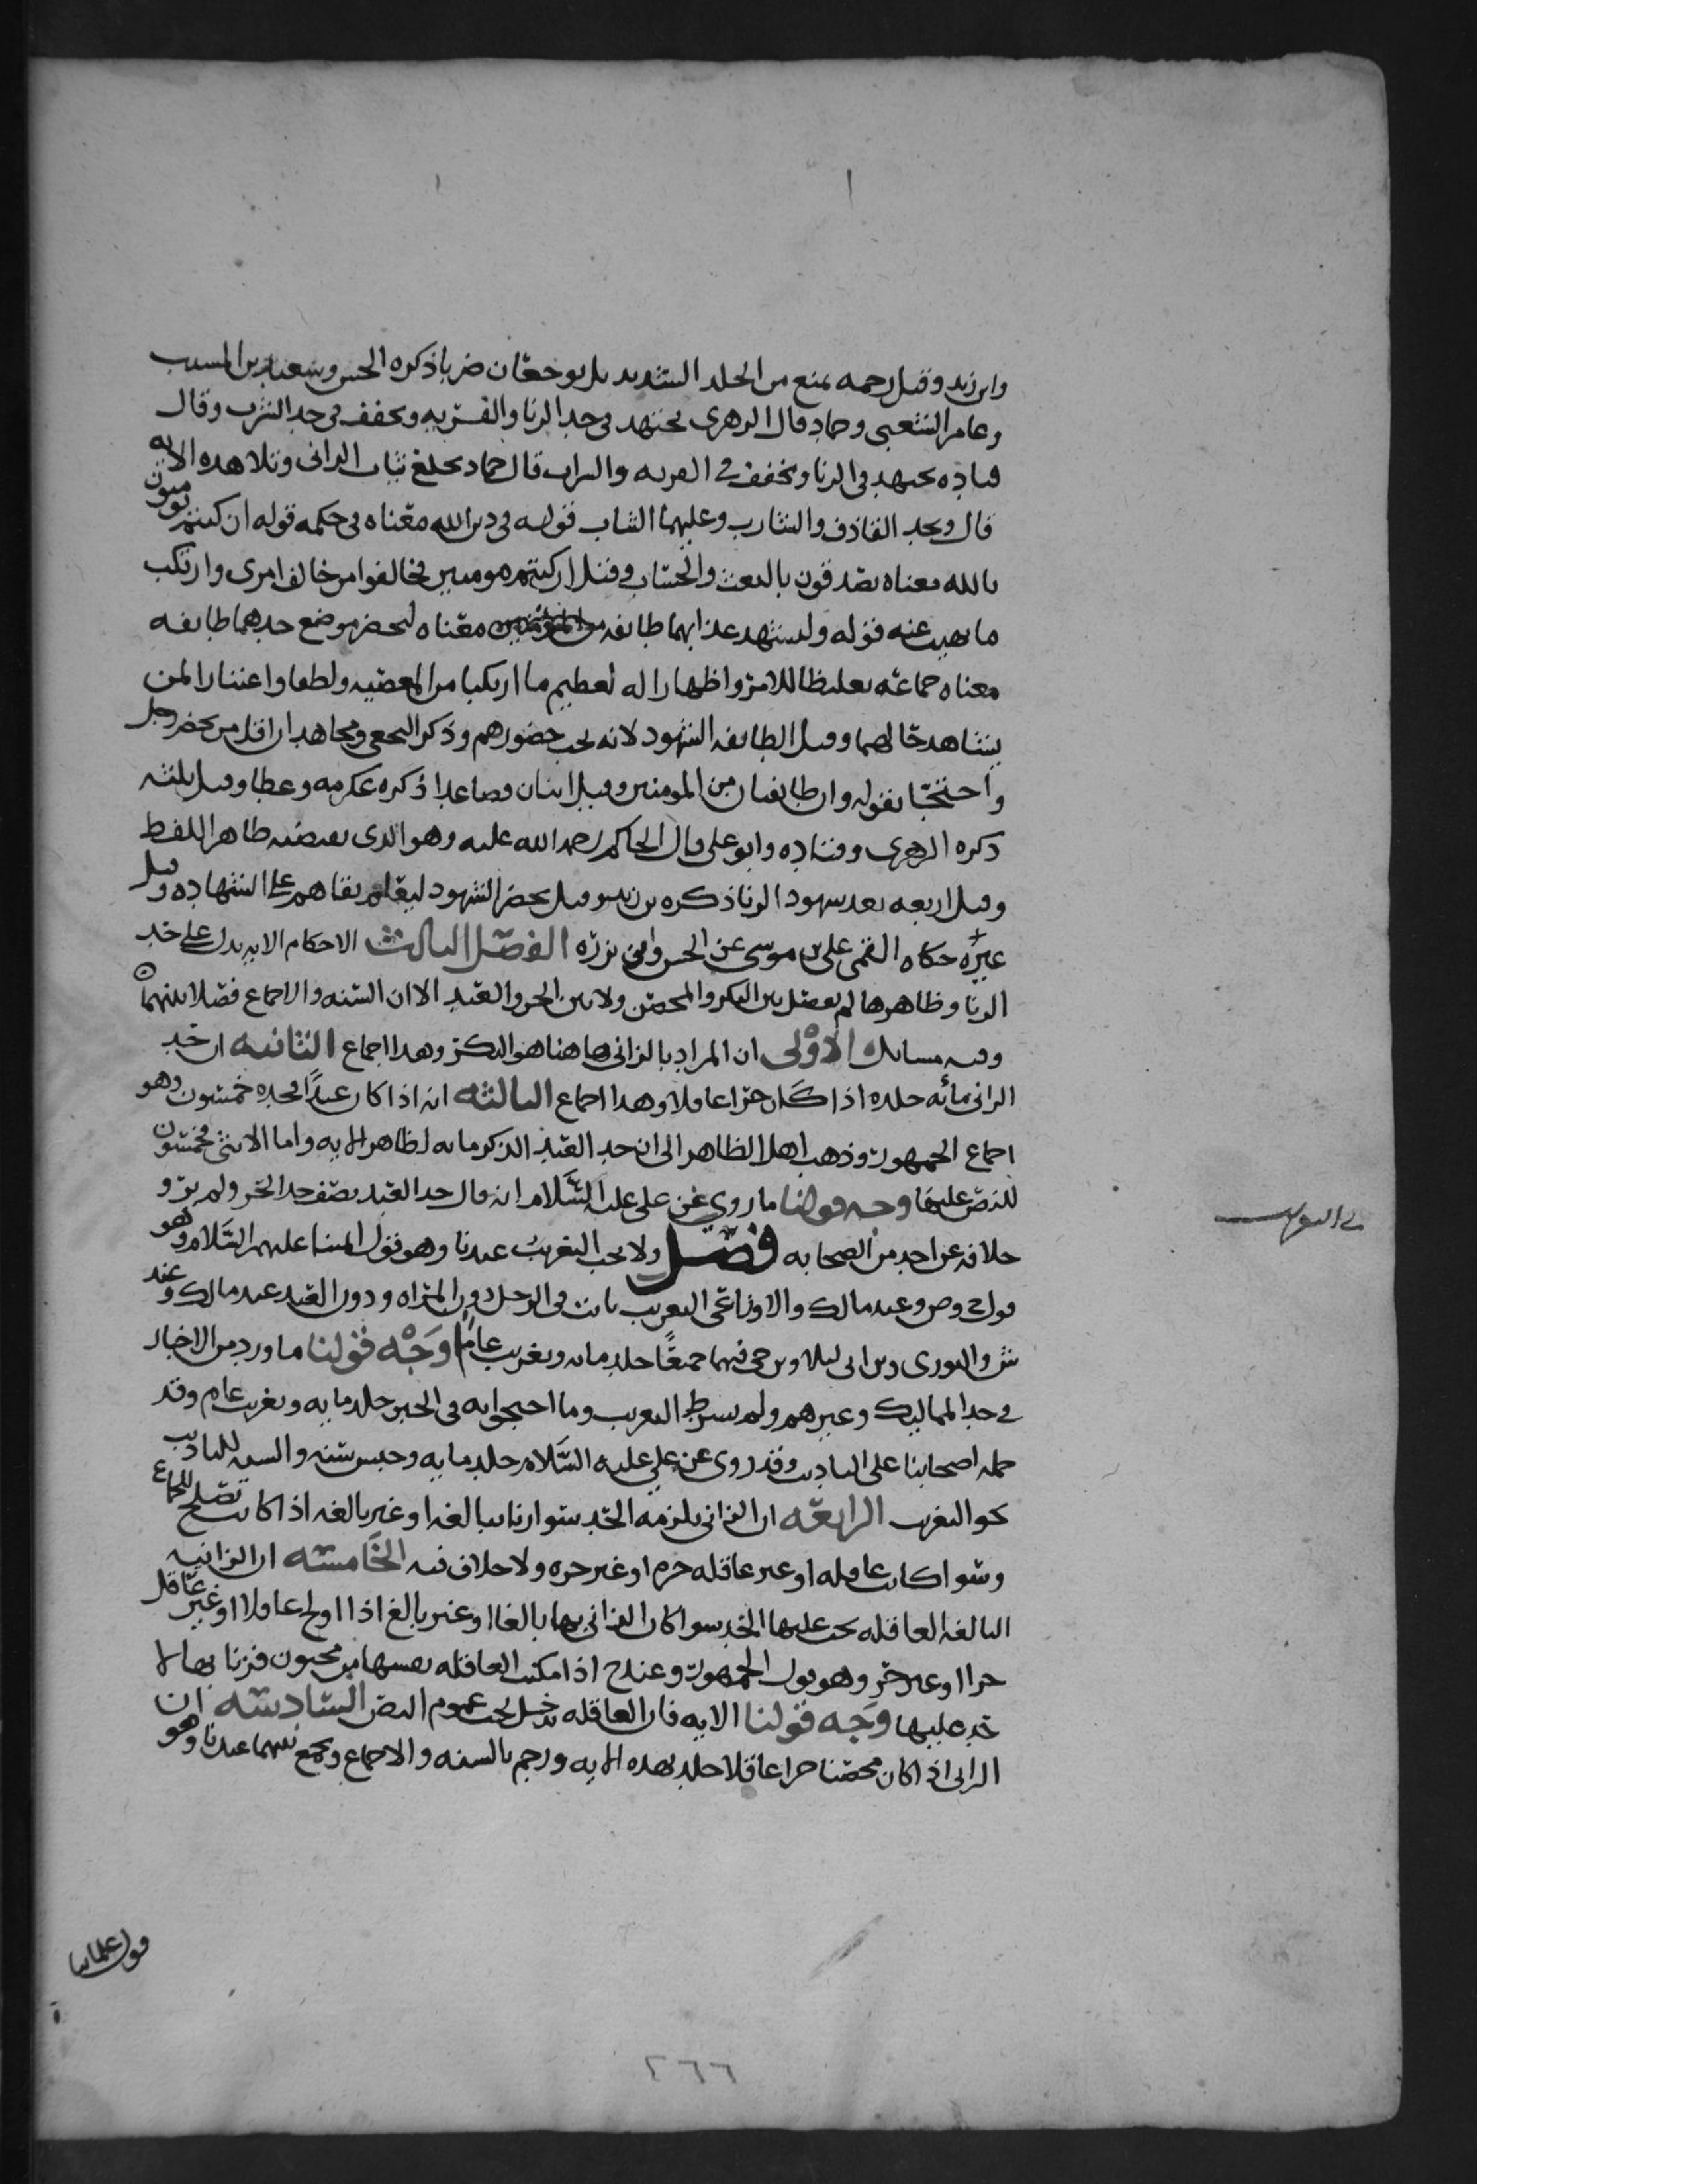 وابن زيد وقيل رحمه يمنع من الجلد الشديد بل يوجعان ضربا ذكره الحسن وسعيد بن المسيب
وعامر الشعبي وحماد قال الزهري يجتهد في حد الزنا والفريه ويخفف في حد الشرب وقال
قتاده يجتهد في الزنا ويخفف في الفريه والشراب قال حماد يخلع ثياب الزاني وتلا هذه الايه
قال ويحد القاذف والشارب وعليهما الثياب قوله في دين الله معناه في حكمه قوله ان كنتم تومنون
بالله معناه تصدقون بالبعث والحساب وقيل ان كنتم مومنين فخالفوا من خالف امري وارتكب
ما نهيت عنه قوله وليشهد عذابهما طايفه من المؤمنين معناه ليحضر موضع حدهما طايفه
معناه جماعه تغليظا للامر واظهارا له لعظيم ما ارتكبا من المعصيه ولطفا واعتبارا لمن
يشاهد حالهما وقيل الطايفه الشهود لانه يجب حضورهم وذكر النخعي ومجاهد ان اقل من يحضر رجل
واحتجا بقوله وان طايفتان من المومنين وقيل اثنان فصاعدا ذكره عكرمه وعطا وقيل ثلثه
ذكره الزهري وقتاده وابو علي قال الحاكم رحمه الله عليه وهو الذي يقتضيه ظاهر اللفظ
وقيل اربعه بعدد شهود الزنا ذكره بن زيد وقيل يحضر الشهود ليعلم بقاهم على الشهاده وقيل
غيره حكاه القمي علي بن موسى عن الحسن وابي برزه الفصل الثالث الاحكام الايه تدل على حد
الزنا وظاهرها لم يفصل بين البكر والمحصن ولا بين الحر والعبد الا ان السنه والاجماع فصلا بينهما
وفيه مسايل الاولى ان المراد بالزاني هاهنا هو البكر وهذا اجماع الثانيه ان حد
الزاني مائه جلده اذا كان حرا عاقلا وهذا اجماع الثالثه انه اذا كان عبدا فحده خمسون وهو
اجماع الجمهور وذهب اهل الظاهر الى ان حد العبد الذكر مايه لظاهر الايه واما الانثى فخمسون
للنص عليها وجه قولنا ما روي عن علي عليه السلام انه قال حد العبد نصف حد الحر ولم يرو
خلافه عن احد من الصحابه فصل ولا يجب التغريب عندنا وهو قول ايمتنا عليهم السلام وهو
قول ح وص وعند مالك والاوزاعي التغريب ثابت في الرجل دون المراه ودون العبد عند مالك وعند
ش والثوري وبن ابي ليلى وبن حي فيهما جميعا جلد مايه وتغريب عام وجه قولنا ما ورد من الاخبار
في حد المماليك وغيرهم ولم يشرط التغريب وما احتجوا به في الخبر جلد مايه وتغريب عام وقد
حمله اصحابنا على التاديب وقد روى عن علي عليه السلام جلد مايه وحبس سنه والسنه للتاديب
نحو التغريب الرابعه ان الزاني يلزمه الحد سوا زنا ببالغه او غير بالغه اذا كانت تصلح للجماع
وسوا كانت عاقله او غير عاقله حره او غير حره ولا خلاف فيه الخامسه ان الزانيه
البالغه العاقله يجب عليها الحد سوا كان الزاني بها بالغا او غير بالغ اذا اولج عاقلا او غير عاقل
حرا او غير حر وهو قول الجمهور وعند ح اذا مكنت العاقله نفسها من مجنون فزنا بها لا
حد عليها وجه قولنا الايه فان العاقله تدخل تحت عموم النص السادسه ان
الزاني اذا كان محصنا حرا عاقلا جلد بهذه الايه ورجم بالسنه والاجماع ويجمع بينهما عندنا وهو
قول علمائنا
٢٦٦